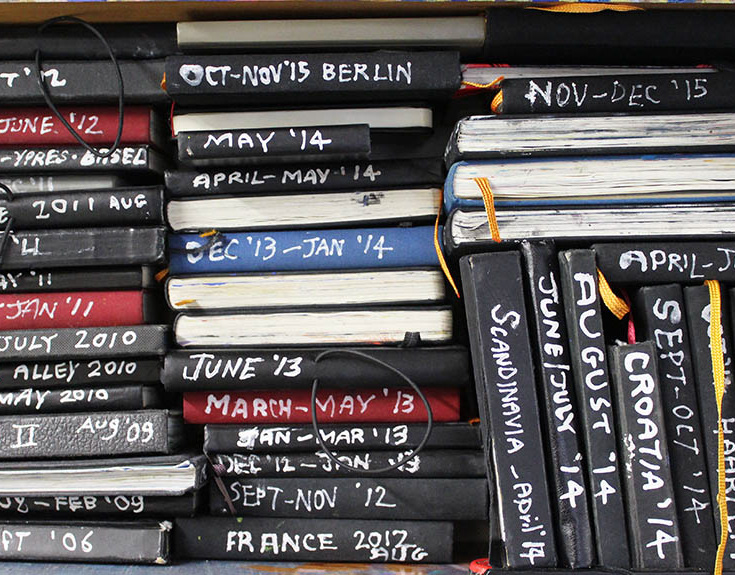 T '12
JUNE '12
-YPRES-BASEL
2011 AUG
'11
AY '11
JAN '11
JULY 2010
ALLEY 2010
MAY 2010
II AUG '09
-FEB '09
'06
OCT-NOV '15 BERLIN
MAY '14
APRIL-MAY '14
DEC '13 - JAN '14
JUNE '13
MARCH-MAY '13
JAN - MAR '13
DEC '12 - JAN '13
SEPT-NOV '12
FRANCE 2012
AUG
NOV-DEC '15
APRIL-J
SCANDINAVIA - April '14
JUNE/JULY '14
AUGUST '14
CROATIA '14
SEPT-OCT '14